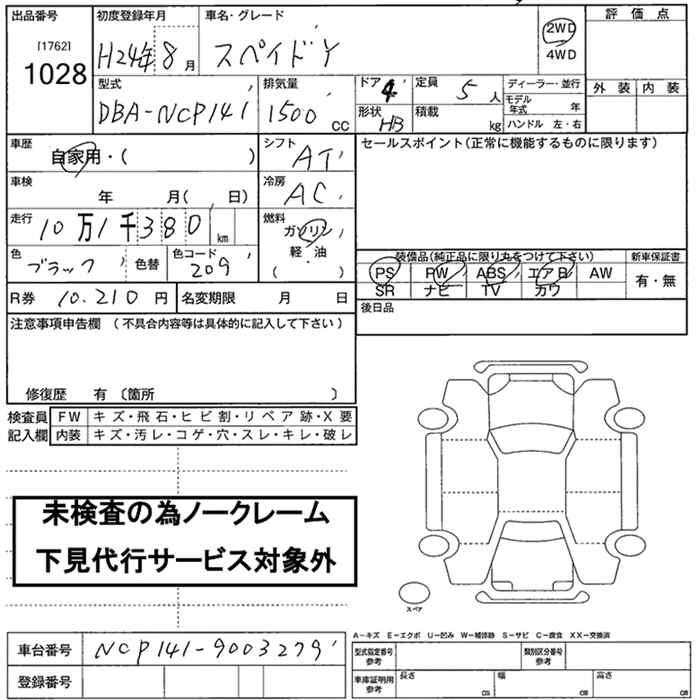 出品番号 初度登録年月 車名・グレード 評価点
[1762] 1028 H24年8月 スペイド Y 2WD
4WD
型式 排気量 ドア 定員 ディーラー・並行 外装 内装
DBA-NCP141 1500 CC 4 5人 モデル年式 年
形状 HB 積載 kg ハンドル 左・右
車歴 自家用・( ) シフト AT セールスポイント(正常に機能するものに限ります)
車検 年 月( 日) 冷房 AC
走行 10万1千380 km 燃料 ガソリン
軽・油
( ・ )
色 ブラック 色替 色コード 209
装備品(純正品に限り丸をつけて下さい) 新車保証書
PS PW ABS エアB AW 有・無
SR ナビ TV カワ
R券 10.210円 名変期限 月 日 後日品
注意事項申告欄(不具合内容等は具体的に記入して下さい)
修復歴 有(箇所 )
検査員 FW キズ・飛石・ヒビ割・リペア跡・X要
記入欄 内装 キズ・汚レ・コゲ・穴・スレ・キレ・破レ
未検査の為ノークレーム
下見代行サービス対象外
スペア
A-キズ E-エクボ U-凹み W-補修跡 S-サビ C-腐食 XX-交換済
車台番号 NCP141-9003279
型式指定番号 参考 類別区分番号 参考
登録番号
車庫証明用 参考 長さ cm 幅 cm 高さ cm